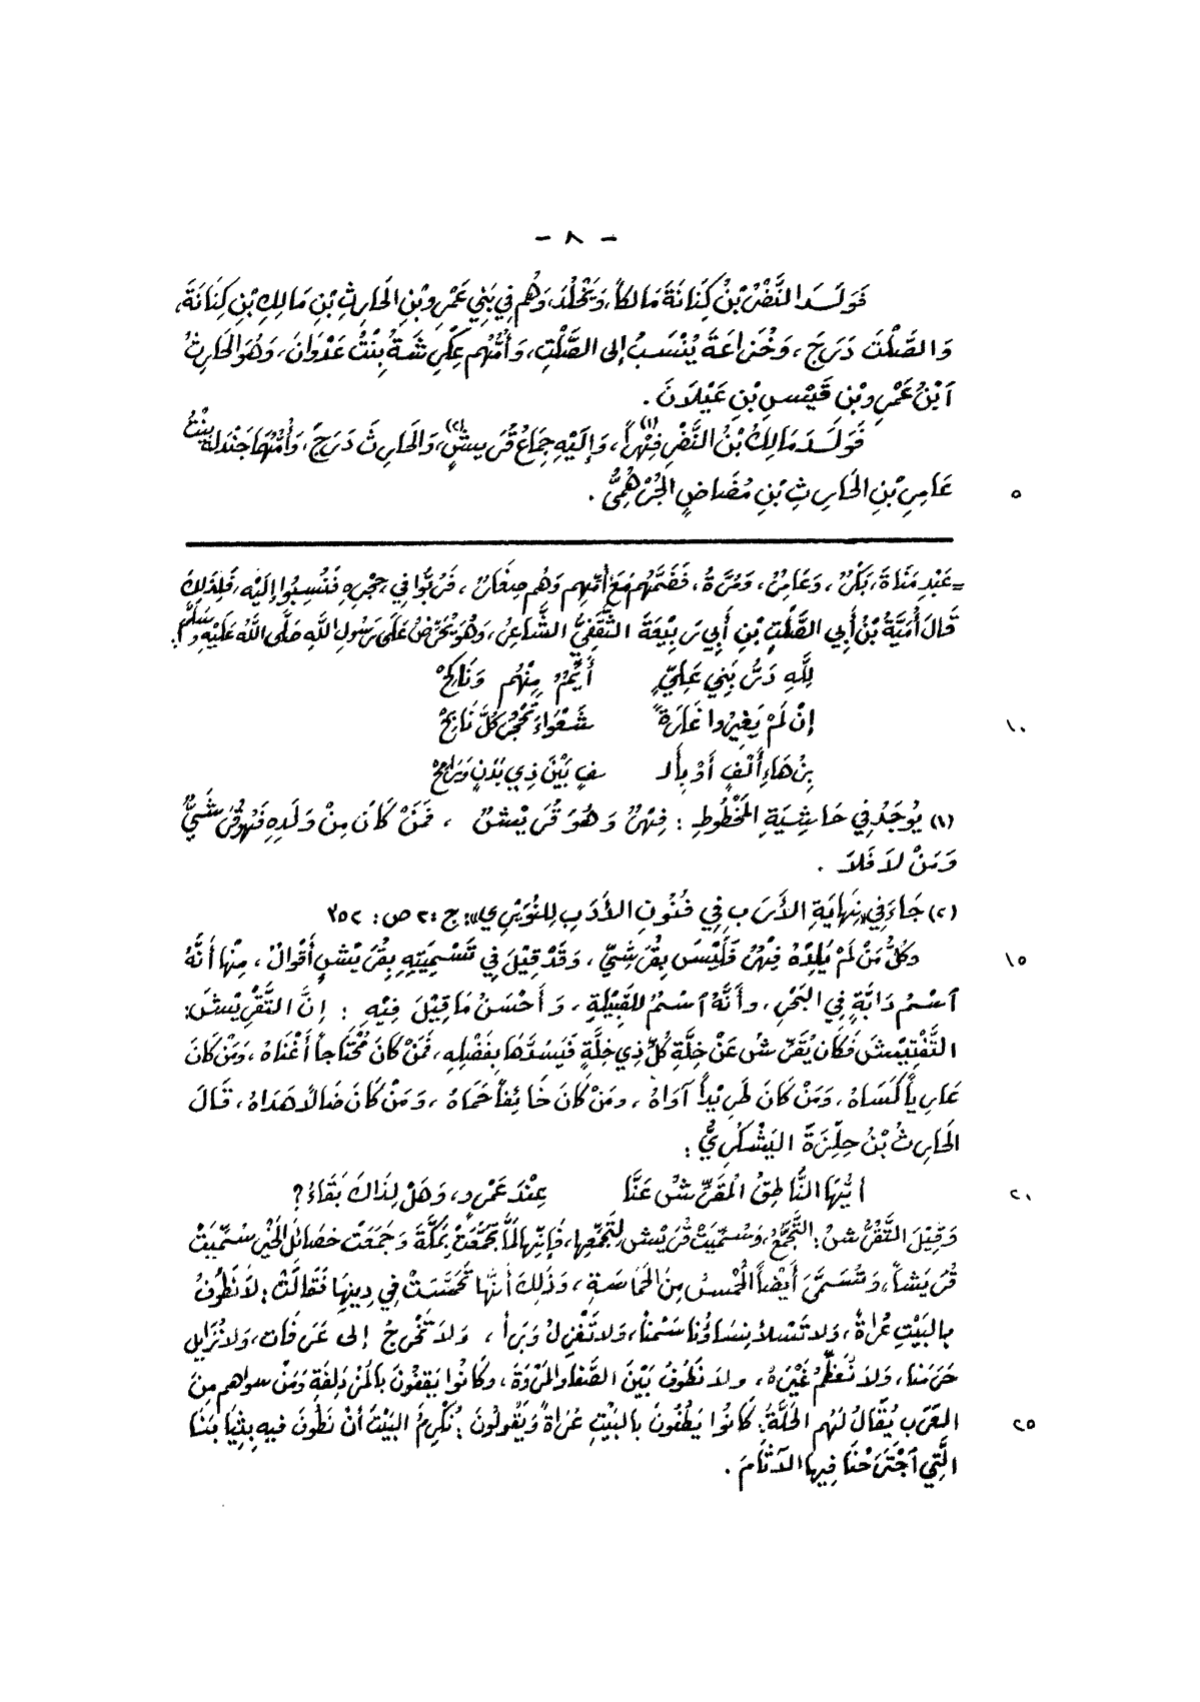 - ٨ -
فَوَلَدَ النَّضْرُ بْنُ كِنَانَةَ مَالِكاً، وَيَخْلُدَ، وَهُم فِي بَنِي عَمْرِو بْنِ الحَارِثِ بْنِ مَالِكِ بْنِ كِنَانَةَ،
وَالصَّلْتَ دَرَجَ، وَخُزَاعَةَ يُنْسَبُ إلى الصَّلْتِ، وَأُمُّهُم عِكْرِشَةُ بِنْتُ عَدْوَانَ، وَهُوَ الحَارِثُ
ٱبْنُ عَمْرِو بْنِ قَيْسِ بْنِ عَيْلَانَ .
فَوَلَدَ مَالِكُ بْنُ النَّضْرِ فِهْراً(١)، وَإِلَيْهِ جِمَاعُ قُرَيشٍ(٢)، وَالحَارِثَ دَرَجَ، وَأُمُّهُمَا جَنْدَلَةُ بِنْتُ
٥ عَامِرِ بْنِ الحَارِثِ بْنِ مُضَاضٍ الجُرْهُمِيُّ .
= عَبْدِ مَنَاةَ، بَكْرٌ، وَعَامِرٌ، وَمُرَّةُ، فَضَمَّهُم مَعَ أُمِّهِم وَهُم صِغَارٌ، فَرُبُّوا فِي حِجْرِهِ فَنُسِبُوا إِلَيْهِ، فَلِذَلِكَ
قَالَ أُمَيَّةُ بْنُ أَبِي الصَّلْتِ بْنِ أَبِي رَبِيْعَةَ الثَّقَفِيُّ الشَّاعِرُ، وَهُوَ يُحَرِّضُ عَلَى رَسُولِ اللَّهِ صَلَّى اللَّهُ عَلَيْهِ وسَلَّم:
لِلَّهِ دَرُّ بَنِي عَلِيٍّ أَيِّمٌ مِنْهُم وَنَاكِحْ
١٠ إِنْ لَمْ يَغِيْرُوا غَارَةً شَعْوَاءَ تَحْجُرُ كُلَّ نَابِحْ
بِزُهَاءِ أَلْفٍ أَوْ بِأَلـ ـفٍ بَيْنَ ذِي بَدَنٍ وَرَامِحْ
(١) يُوجَدُ فِي حَاشِيَةِ المَخْطُوطِ : فِهْرٌ وَهُوَ قُرَيْشٌ ، فَمَنْ كَانَ مِنْ وَلَدِهِ فَهُوَ قُرَشِيٌّ
وَمَنْ لاَ فَلاَ .
(٢) جَاءَ فِي «نِهَايَةِ الأَرَبِ فِي فُنُونِ الأَدَبِ لِلنُّوَيْرِي» : ج :٢ ص : ٣٥٢
١٥ وكُلُّ مَنْ لَمْ يَلِدْهُ فِهْرٌ فَلَيْسَ بِقُرَشِيٍّ، وَقَدْ قِيْلَ فِي تَسْمِيَتِهِ بِقُرَيْشٍ أَقْوَالٌ، مِنْها أَنَّهُ
ٱسْمُ دَابَّةٍ فِي البَحْرِ، وأَنَّهُ ٱسْمٌ لِلقَبِيْلَةِ، وَأَحْسَنُ مَا قِيْلَ فِيْهِ : إِنَّ التَّقْرِيْشَ:
التَّفْتِيْشُ فَكَانَ يُقَرِّشُ عَنْ خِلَّةِ كُلِّ ذِي خِلَّةٍ فَيَسُدُّهَا بِفَضْلِهِ، فَمَنْ كَانَ مُحْتَاجاً أَغْنَاهُ، وَمَنْ كَانَ
عَارِياً كَسَاهُ، وَمَنْ كَانَ طَرِيْداً آوَاهُ، ومَنْ كَانَ خَائِفاً حَمَاهُ، وَمَنْ كَانَ ضَالاً هَدَاهُ، قَالَ
الحَارِثُ بْنُ حِلِّزَةَ اليَشْكُرِيُّ :
٢٠ أَيُّهَا النَّاطِقُ المُقَرِّشُ عَنَّا عِنْدَ عَمْرٍو، وَهَلْ لِذَاكَ بَقَاءُ؟
وَقِيْلَ التَّقَرُّشُ : التَّجَمُّعُ، وسُمِّيَتْ قُرَيْشُ لِتَجَمُّعِها، فَإِنَّها لَمَّا تَجَمَّعَتْ بِمَكَّةَ وَجَمَعَت خِصَالَ الخَيْرِ سُمِّيَتْ
قُرَيشاً، وَتُسَمَّى أَيْضاً الحُمْسُ مِنَ الحَمَاسَةِ، وَذَلِكَ أَنَّها تَحَمَّسَتْ فِي دِينِهَا فَقَالَتْ : لاَ نَطُوفُ
بِالبَيْتِ عُرَاةً، ولا تَسْلأُ نِسَاؤُنَا سَمْناً، ولا تَغْزِلُ وَبَراً، وَلاَ تَخْرُجُ إلى عَرَفَات، ولا نُزَايِل
حَرَمَنا، وَلاَ نُعَظِّمُ غَيْرَهُ، ولا نَطُوفُ بَيْنَ الصَّفَا والمَرْوَةَ، وكَانُوا يَقِفُونَ بِالمُزْدَلِفَةِ وَمَنْ سِوَاهم مِنَ
٢٥ العَرَبِ يُقَالُ لَهُم الحَلَّةُ : كَانُوا يَطُفُونَ بِالبَيْتِ عُرَاةً وَيَقُولُونَ : نُكْرِمُ البَيْتَ أَنْ نَطُوفَ فيهِ بِثِيَابِنَا
الَّتِي ٱجْتَرَحْنَا فِيها الآثَامَ .